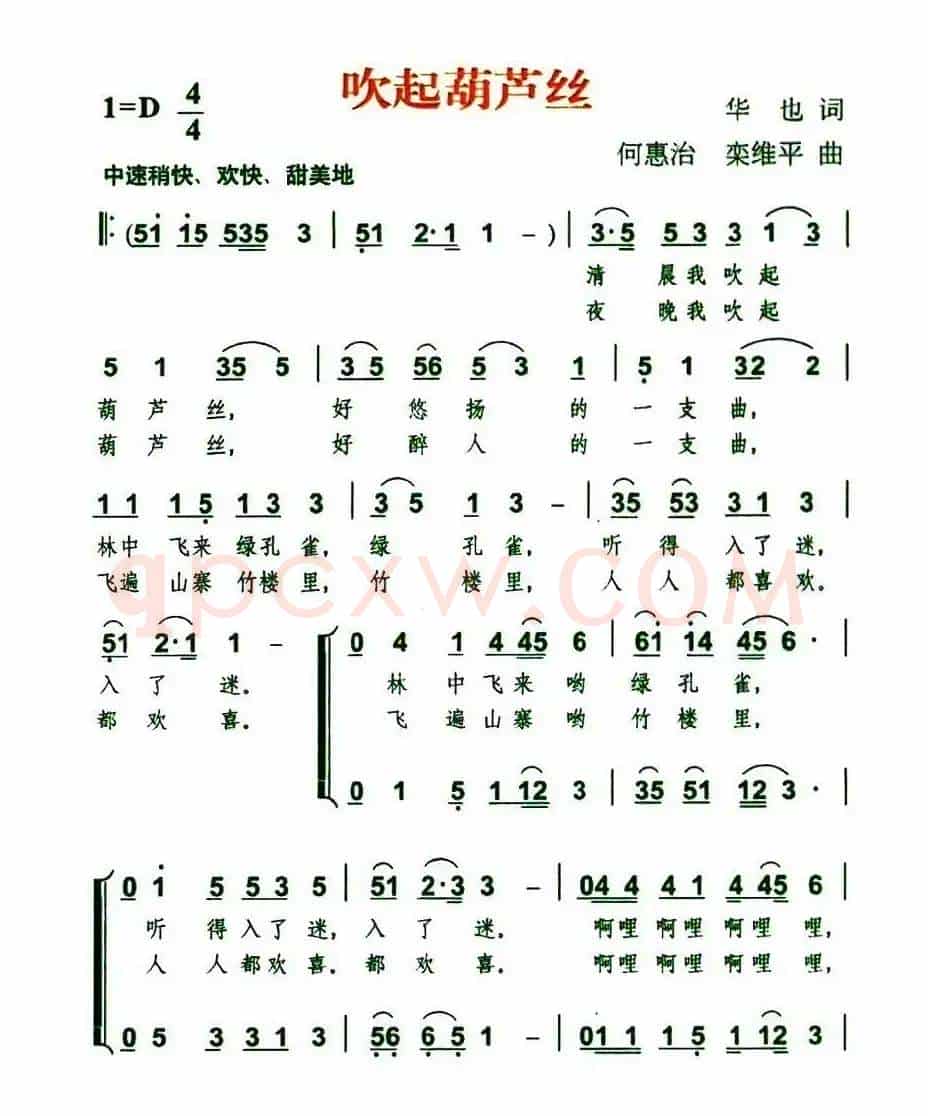 吹起葫芦丝
1=D 4/4
华 也 词
何惠治 栾维平 曲
中速稍快、欢快、甜美地
(51 15 535 3 | 51 2·1 1 - ) | 3·5 5 3 3 1 3 |
清 晨我吹起
夜 晚我吹起
5 1 35 5 | 3 5 56 5 3 1 | 5 1 32 2 |
葫 芦 丝, 好 悠 扬 的 一 支 曲,
葫 芦 丝, 好 醉 人 的 一 支 曲,
1 1 1 5 1 3 3 | 3 5 1 3 - | 35 53 3 1 3 |
林中 飞来 绿孔 雀, 绿 孔 雀, 听 得 入了 迷,
飞遍 山寨 竹楼 里, 竹 楼 里, 人 人 都喜 欢。
qpcxw.COM
51 2·1 1 - | 0 4 1 4 45 6 | 61 14 45 6· |
入 了 迷。 林 中飞来 哟 绿孔 雀,
都 欢 喜。 飞 遍山寨 哟 竹楼 里,
0 1 5 1 12 3 | 35 51 12 3· |
0 1 5 5 3 5 | 51 2·3 3 - | 04 4 4 1 4 45 6 |
听 得入了 迷, 入 了 迷, 啊哩 啊哩 啊哩 哩,
人 人都欢 喜。 都 欢 喜。 啊哩 啊哩 啊哩 哩,
0 5 3 3 1 3 | 56 6 5 1 - | 01 1 1 5 1 12 3 |